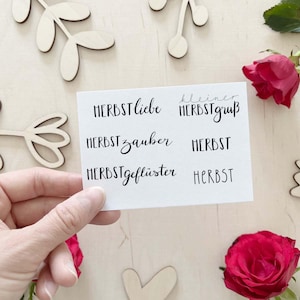 HERBSTliebe
kleiner
HERBSTgruß
HERBSTzauber
HERBST
HERBSTgeflüster
HERBST